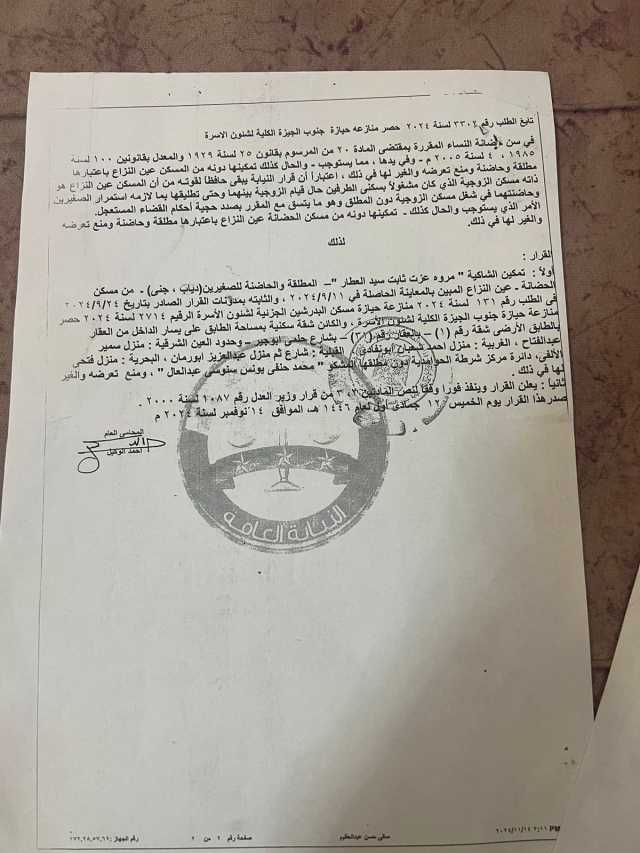 تابع الطلب رقم ٣٣٠٢ لسنة ٢٠٢٤ حصر منازعه حيازة جنوب الجيزة الكلية لشئون الاسرة
في سن حضانة النساء المقررة بمقتضى المادة ٢٠ من المرسوم بقانون ٢٥ لسنة ١٩٢٩ والمعدل بقانونين ١٠٠ لسنة
١٩٨٥ ، ٤ لسنة ٢٠٠٥ م - وفي يدها ، مما يستوجب - والحال كذلك تمكينها دونه من المسكن عين النزاع باعتبارها
مطلقة وحاضنة ومنع تعرضه والغير لها في ذلك ، اعتباراً أن قرار النيابة يبقى حافظاً لقوته من أن المسكن عين النزاع هو
ذاته مسكن الزوجية الذي كان مشغولاً بسكنى الطرفين حال قيام الزوجية بينهما وحتى تطليقها بما لازمه استمرار الصغيرين
وحاضنتهما في شغل مسكن الزوجية دون المطلق وهو ما يتسق مع المقرر بصدد حجية أحكام القضاء المستعجل.
الأمر الذي يستوجب والحال كذلك - تمكينها دونه من مسكن الحضانة عين النزاع باعتبارها مطلقة وحاضنة ومنع تعرضه
والغير لها في ذلك.
لذلك
القرار :
أولاً : تمكين الشاكية " مروه عزت ثابت سيد العطار "– المطلقة والحاضنة للصغيرين(دياب ، جنى) - من مسكن
الحضانة - عين النزاع المبين بالمعاينة الحاصلة في ٢٠٢٤/٩/١١ ، والثابته بمدونات القرار الصادر بتاريخ ٢٠٢٤/٩/٢٤
في الطلب رقم ١٣١ لسنة ٢٠٢٤ منازعة حيازة مسكن البدرشين الجزئية لشئون الأسرة الرقيم ٢٧١٤ لسنة ٢٠٢٤ حصر
منازعة حيازة جنوب الجيزة الكلية لشئون الأسرة ، والكائن شقة سكنية بمساحة الطابق على يسار الداخل من العقار
بالطابق الأرضي شقة رقم (١) – بالعقار رقم (٣١) – بشارع حلمى ابوجبر – وحدود العين الشرقية : منزل سمير
عبدالفتاح ، الغربية : منزل احمد شعبان ابونفادي ، القبلية : شارع ثم منزل عبدالعزيز ابورمان ، البحرية : منزل فتحي
الألفي، دائرة مركز شرطة الحوامدية دون مطلقها المشكو " محمد حنفى يونس سنوسى عبدالعال " ، ومنع تعرضه والغير
لها في ذلك .
ثانياً : يعلن القرار وينفذ فورا وفقا لنص المادتين ٣،٢ من قرار وزير العدل رقم ١٠٨٧ لسنة ٢٠٠٠ .
صدر هذا القرار يوم الخميس ١٢ جمادى أول لعام ١٤٤٦ هـ، الموافق ١٤ نوفمبر لسنة ٢٠٢٤ م
المحامي العام
احمد الوكيل
النيابة العامة
٢٠٢٤/١١/١٤ ٢:١١ PM
صفحة رقم ٢ من ٢
رقم الجهاز